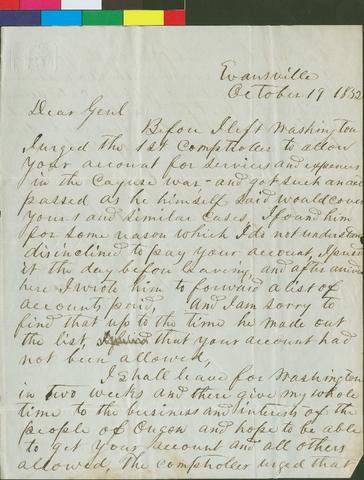 Evansville
October 19 1852
Dear Genl
Before I left Washington
I urged the 1st Comptroller to allow
your account for services and expenses
in the Cayuse war - and got such an act
passed as he himself said would cover
yours and similar cases, I found him
for some reason which I do not understand
disinclined to pay your account, I pressed
it the day before leaving, and after
here I wrote him to forward a list of
accounts paid, and I am sorry to
find that up to the time he made out
the list, that your account had
not been allowed,
I shall leave for Washington
in two weeks and there give my whole
time to the business and interest of the
people of Oregon and hope to be able
to get your account and all others
allowed, The comptroller urged that